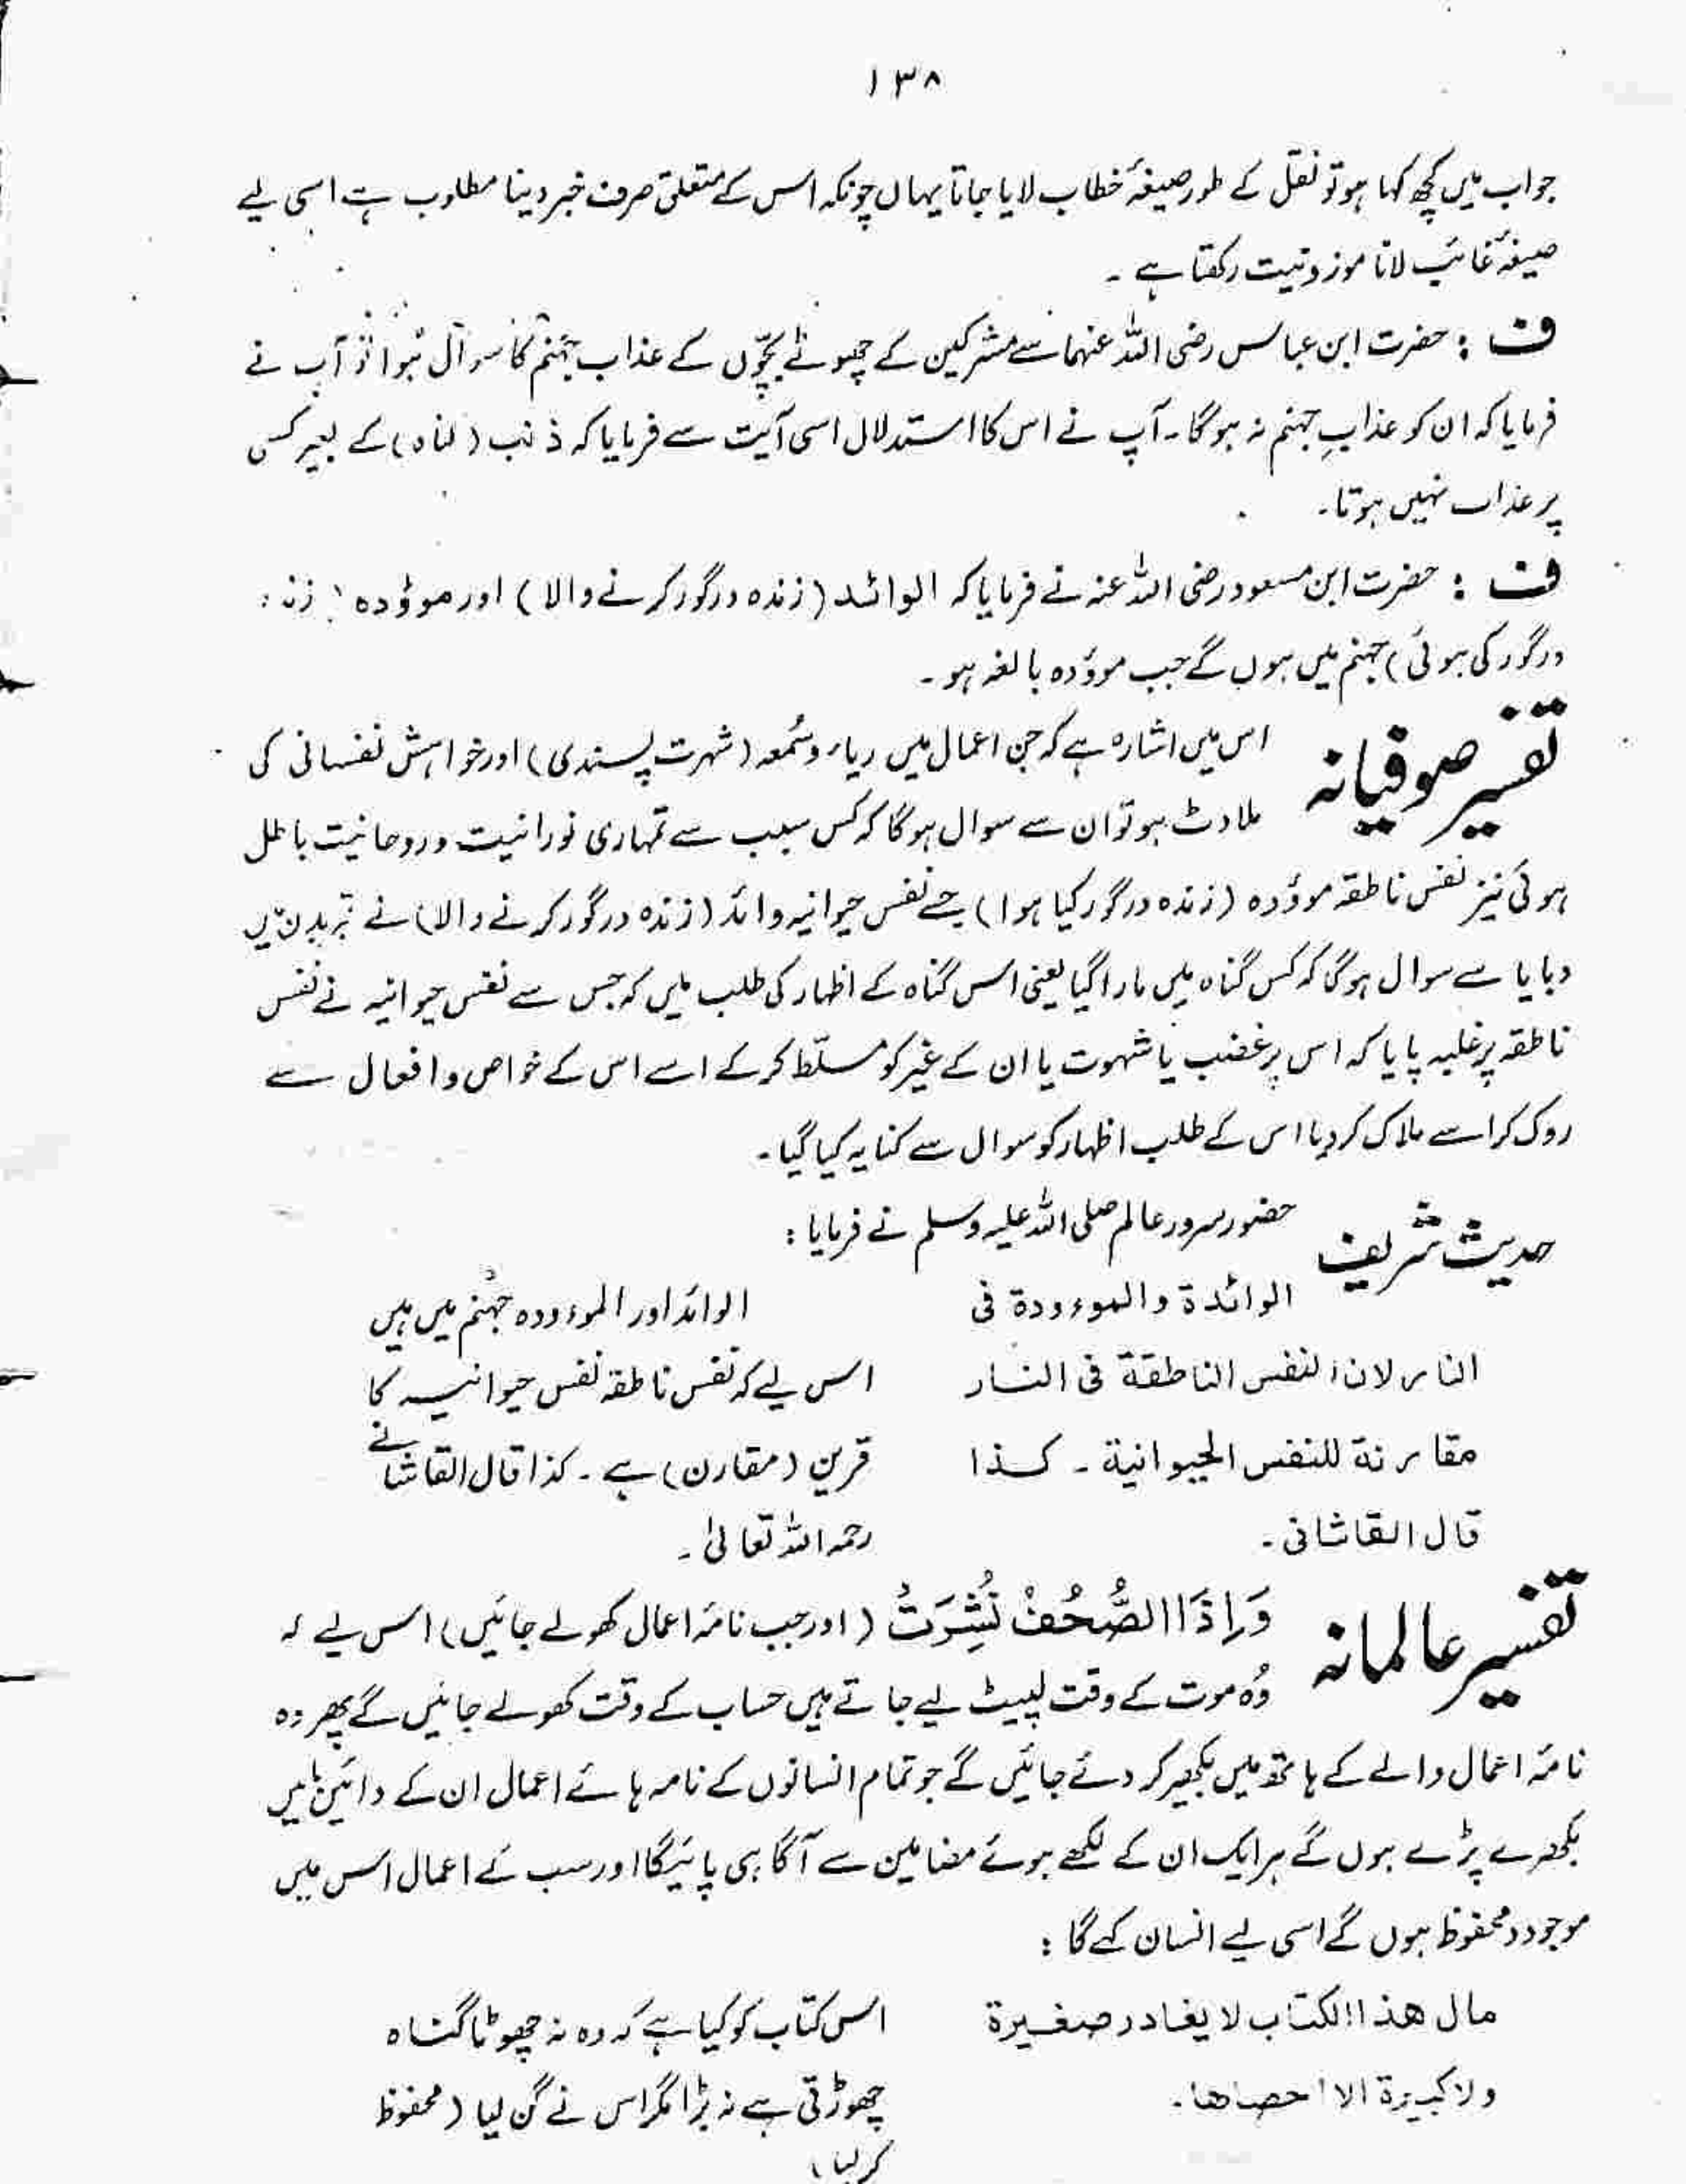 ۱۳۸
جواب میں کچھ کہا ہو تو نقل کے طور صیغۂ خطاب لایا جاتا یہاں چونکہ اس کے متعلق صرف خبر دینا مطلوب ہے اسی لیے
صیغۂ غائب لانا موزونیت رکھتا ہے ۔
ف : حضرت ابن عباس رضی اللہ عنہما سے مشرکین کے چھوٹے بچّوں کے عذاب جہنم کا سوال ہُوا تو آپ نے
فرمایا کہ ان کو عذابِ جہنم نہ ہوگا ۔ آپ نے اس کا استدلال اسی آیت سے فرمایا کہ ذنب (گناہ) کے بغیر کسی
پر عذاب نہیں ہوتا۔
ف : حضرت ابن مسعود رضی اللہ عنہ نے فرمایا کہ الوائد (زندہ درگور کرنے والا) اور موؤدہ (زندہ
درگور کی ہوئی) جہنم میں ہوں گے جب موؤدہ بالغہ ہو ۔
تفسیر صوفیانہ اس میں اشارہ ہے کہ جن اعمال میں ریاء و سُمعہ (شہرت پسندی) اور خواہش نفسانی کی
ملاوٹ ہو تو ان سے سوال ہوگا کہ کس سبب سے تمہاری نورانیت و روحانیت باطل
ہوئی نیز نفس ناطقہ موؤدہ (زندہ درگور کیا ہوا) جسے نفس حیوانیہ وائد (زندہ درگور کرنے والا) نے قبر بدن میں
دبایا سے سوال ہوگا کہ کس گناہ میں مارا گیا یعنی اس گناہ کے اظہار کی طلب میں کہ جس سے نفس حیوانیہ نے نفس
ناطقہ پر غلبہ پایا کہ اس پر غضب یا شہوت یا ان کے غیر کو مسلّط کر کے اسے اس کے خواص و افعال سے
روک کر اسے ہلاک کر دیا اس کے طلب اظہار کو سوال سے کنایہ کیا گیا ۔
حدیث شریف حضور سرور عالم صلی اللہ علیہ وسلم نے فرمایا :
الوائدة والموءودة فی الوائد اور الموءودہ جہنم میں ہیں
النار لان النفس الناطقة فی النار اس لیے کہ نفس ناطقہ نفس حیوانیہ کا
مقارنة للنفس الحیوانیة ۔ کذا قرین (مقارن) ہے ۔ کذا قال القاشانے
قال القاشانی ۔ رحمہ اللہ تعالیٰ ۔
تفسیر عالمانہ وَاِذَا الصُّحُفُ نُشِرَتْ (اور جب نامۂ اعمال کھولے جائیں) اس لیے کہ
وُہ موت کے وقت لپیٹ لیے جاتے ہیں حساب کے وقت کھولے جائیں گے پھر وہ
نامۂ اعمال والے کے ہاتھ میں بکھیر کر دئے جائیں گے جو تمام انسانوں کے نامہ ہائے اعمال ان کے دائیں بائیں
بکھرے پڑے ہوں گے ہر ایک ان کے لکھے ہوئے مضامین سے آگاہی پائیگا اور سب کے اعمال اس میں
موجود و محفوظ ہوں گے اسی لیے انسان کہے گا :
مال ھذا الکتاب لا یغادر صغیرة اس کتاب کو کیا ہے کہ وہ نہ چھوٹا گناہ
ولا کبیرة الا احصاھا ۔ چھوڑتی ہے نہ بڑا مگر اس نے گن لیا (محفوظ
کر لیا)